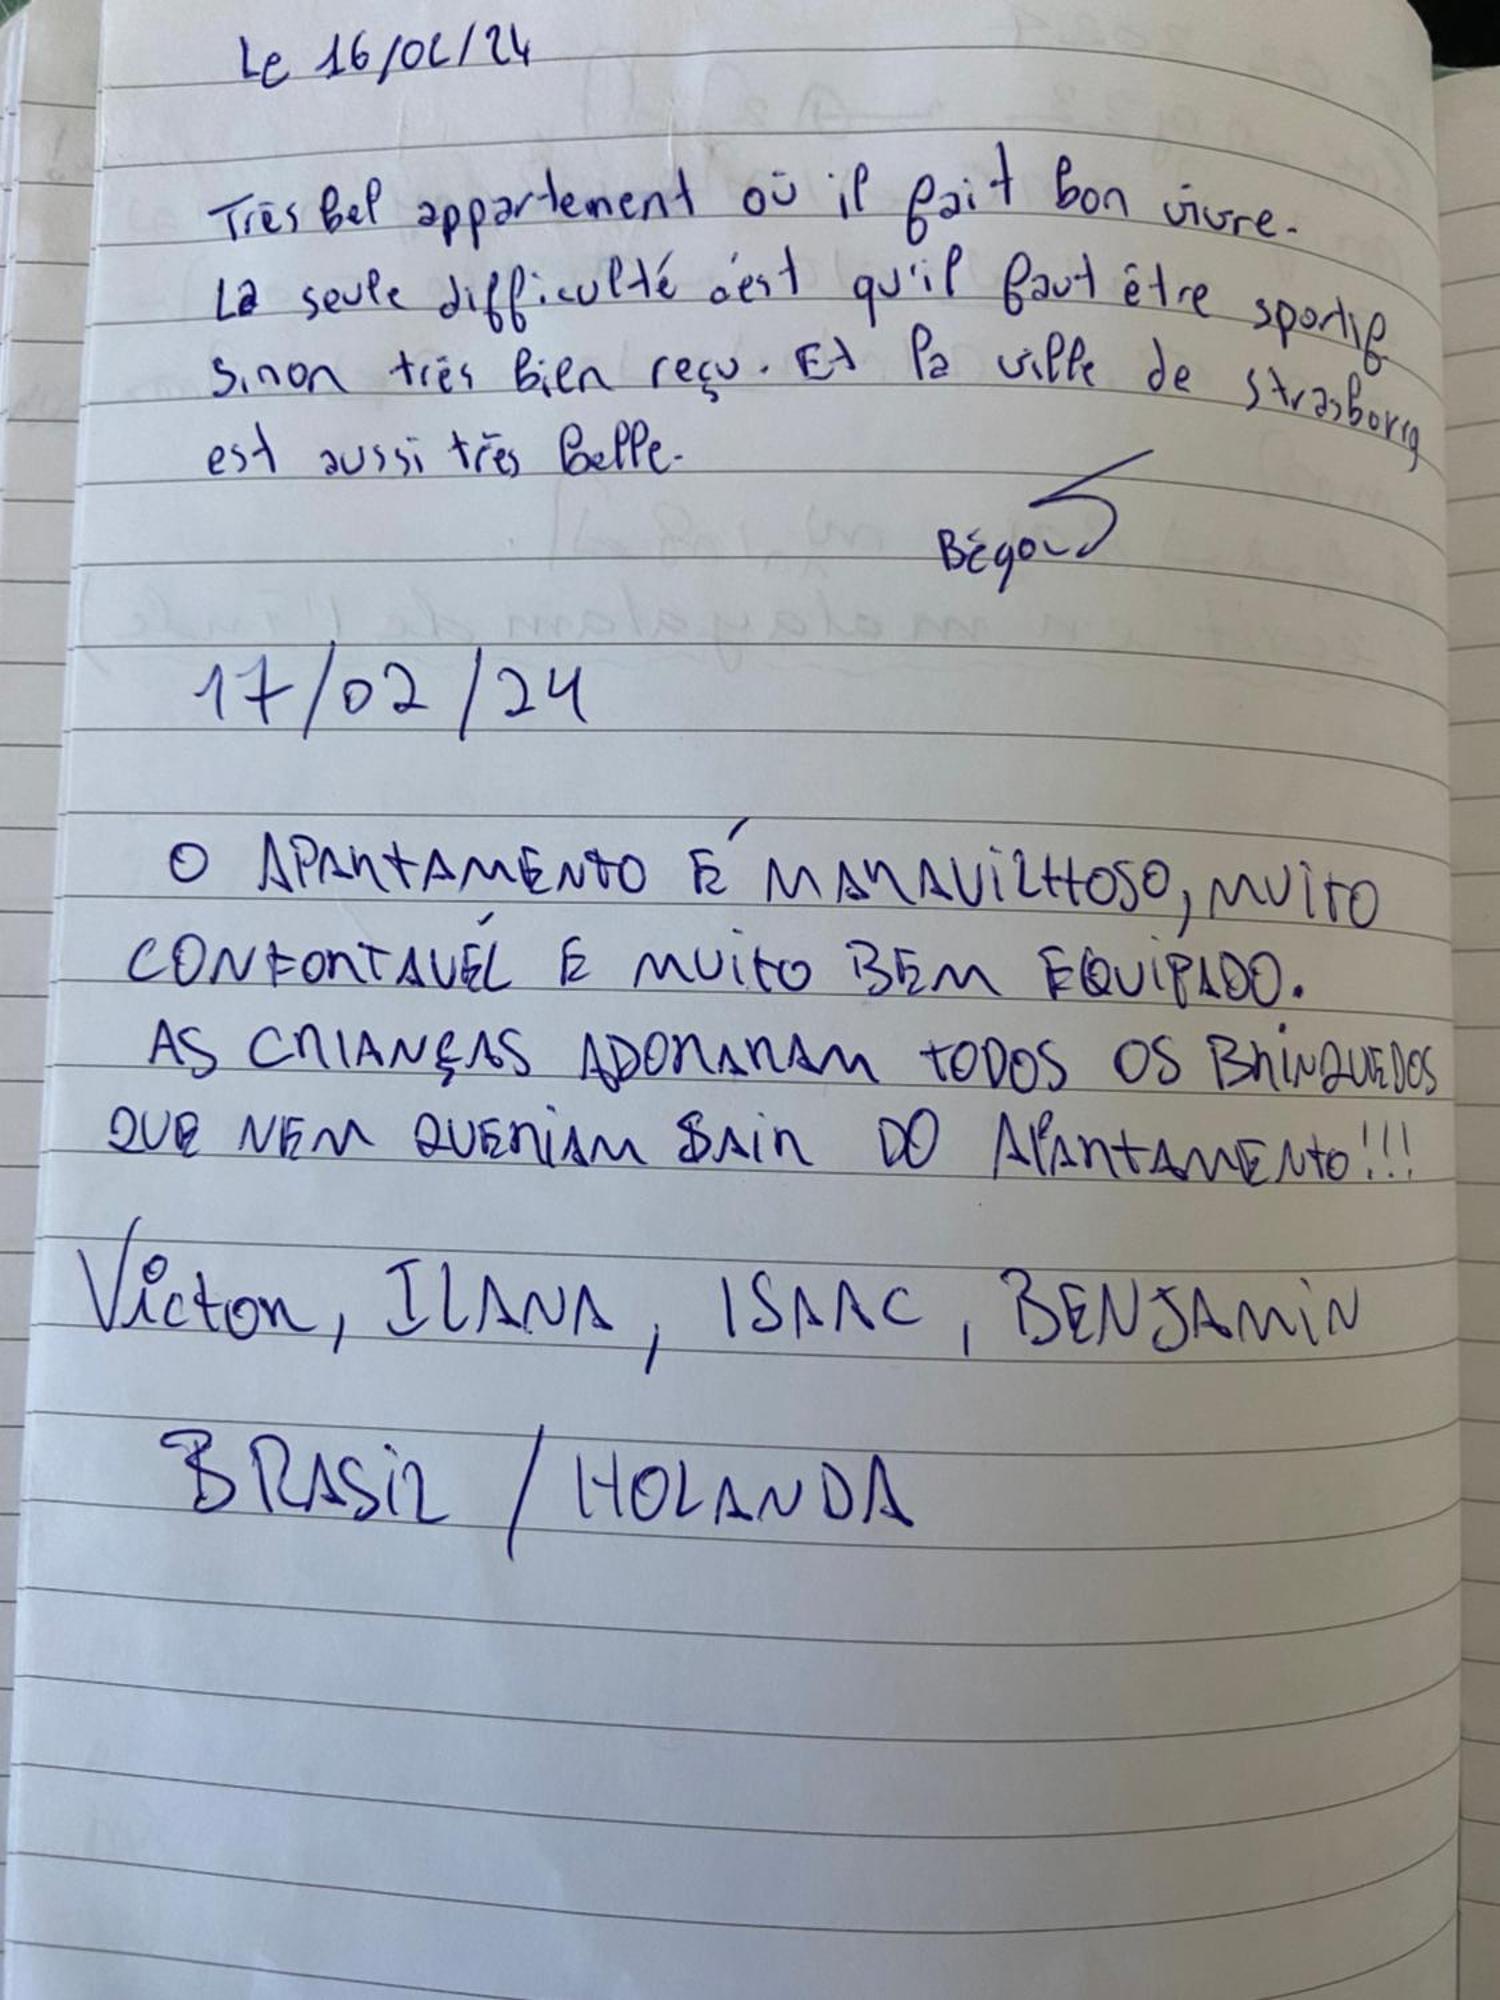 Le 16/02/24
Très bel appartement où il fait bon vivre.
La seule difficulté c'est qu'il faut être sportif
sinon très bien reçu. Et la ville de strasborrg
est aussi très belle.
Bégou
17/02/24
O APARTAMENTO É MARAVILHOSO, MUITO
CONFORTAVÉL E MUITO BEM EQUIPADO.
AS CRIANÇAS ADORARAM TODOS OS BRINQUEDOS
QUE NEM QUERIAM SAIR DO APARTAMENTO!!!
Victor, ILANA, ISAAC, BENJAMIN
BRASIL / HOLANDA